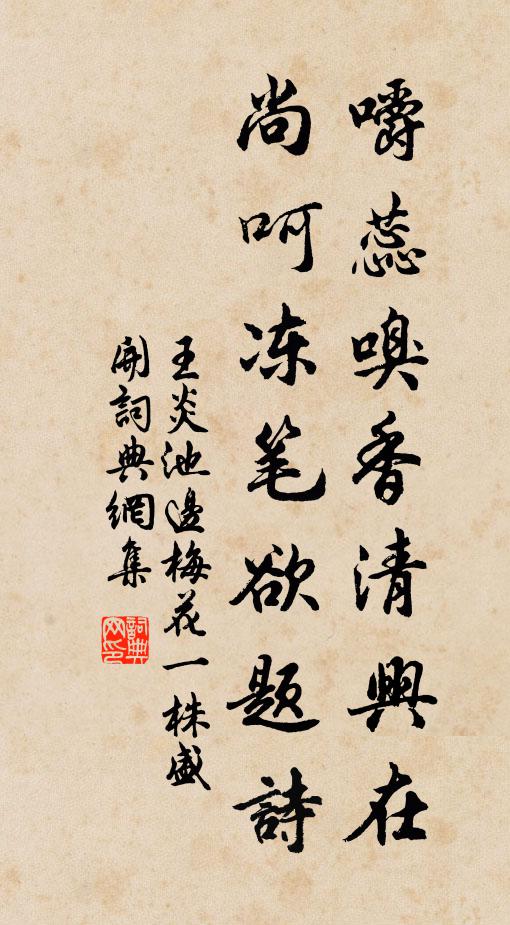 嚼蕊嗅香清興在
尚呵冻笔欲题詩
王炎池邊梅花一株盛
開詞典網集
詞典
网印